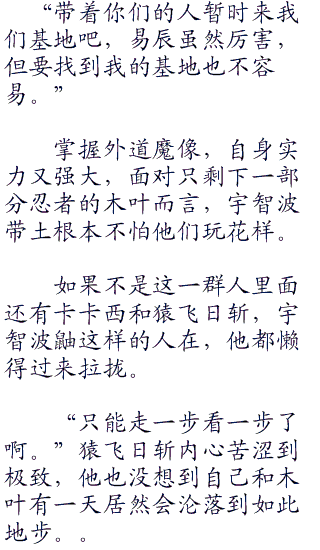 “带着你们的人暂时来我
们基地吧，易辰虽然厉害，
但要找到我的基地也不容
易。”
掌握外道魔像，自身实
力又强大，面对只剩下一部
分忍者的木叶而言，宇智波
带土根本不怕他们玩花样。
如果不是这一群人里面
还有卡卡西和猿飞日斩，宇
智波鼬这样的人在，他都懒
得过来拉拢。
“只能走一步看一步了
啊。”猿飞日斩内心苦涩到
极致，他也没想到自己和木
叶有一天居然会沦落到如此
地步。。